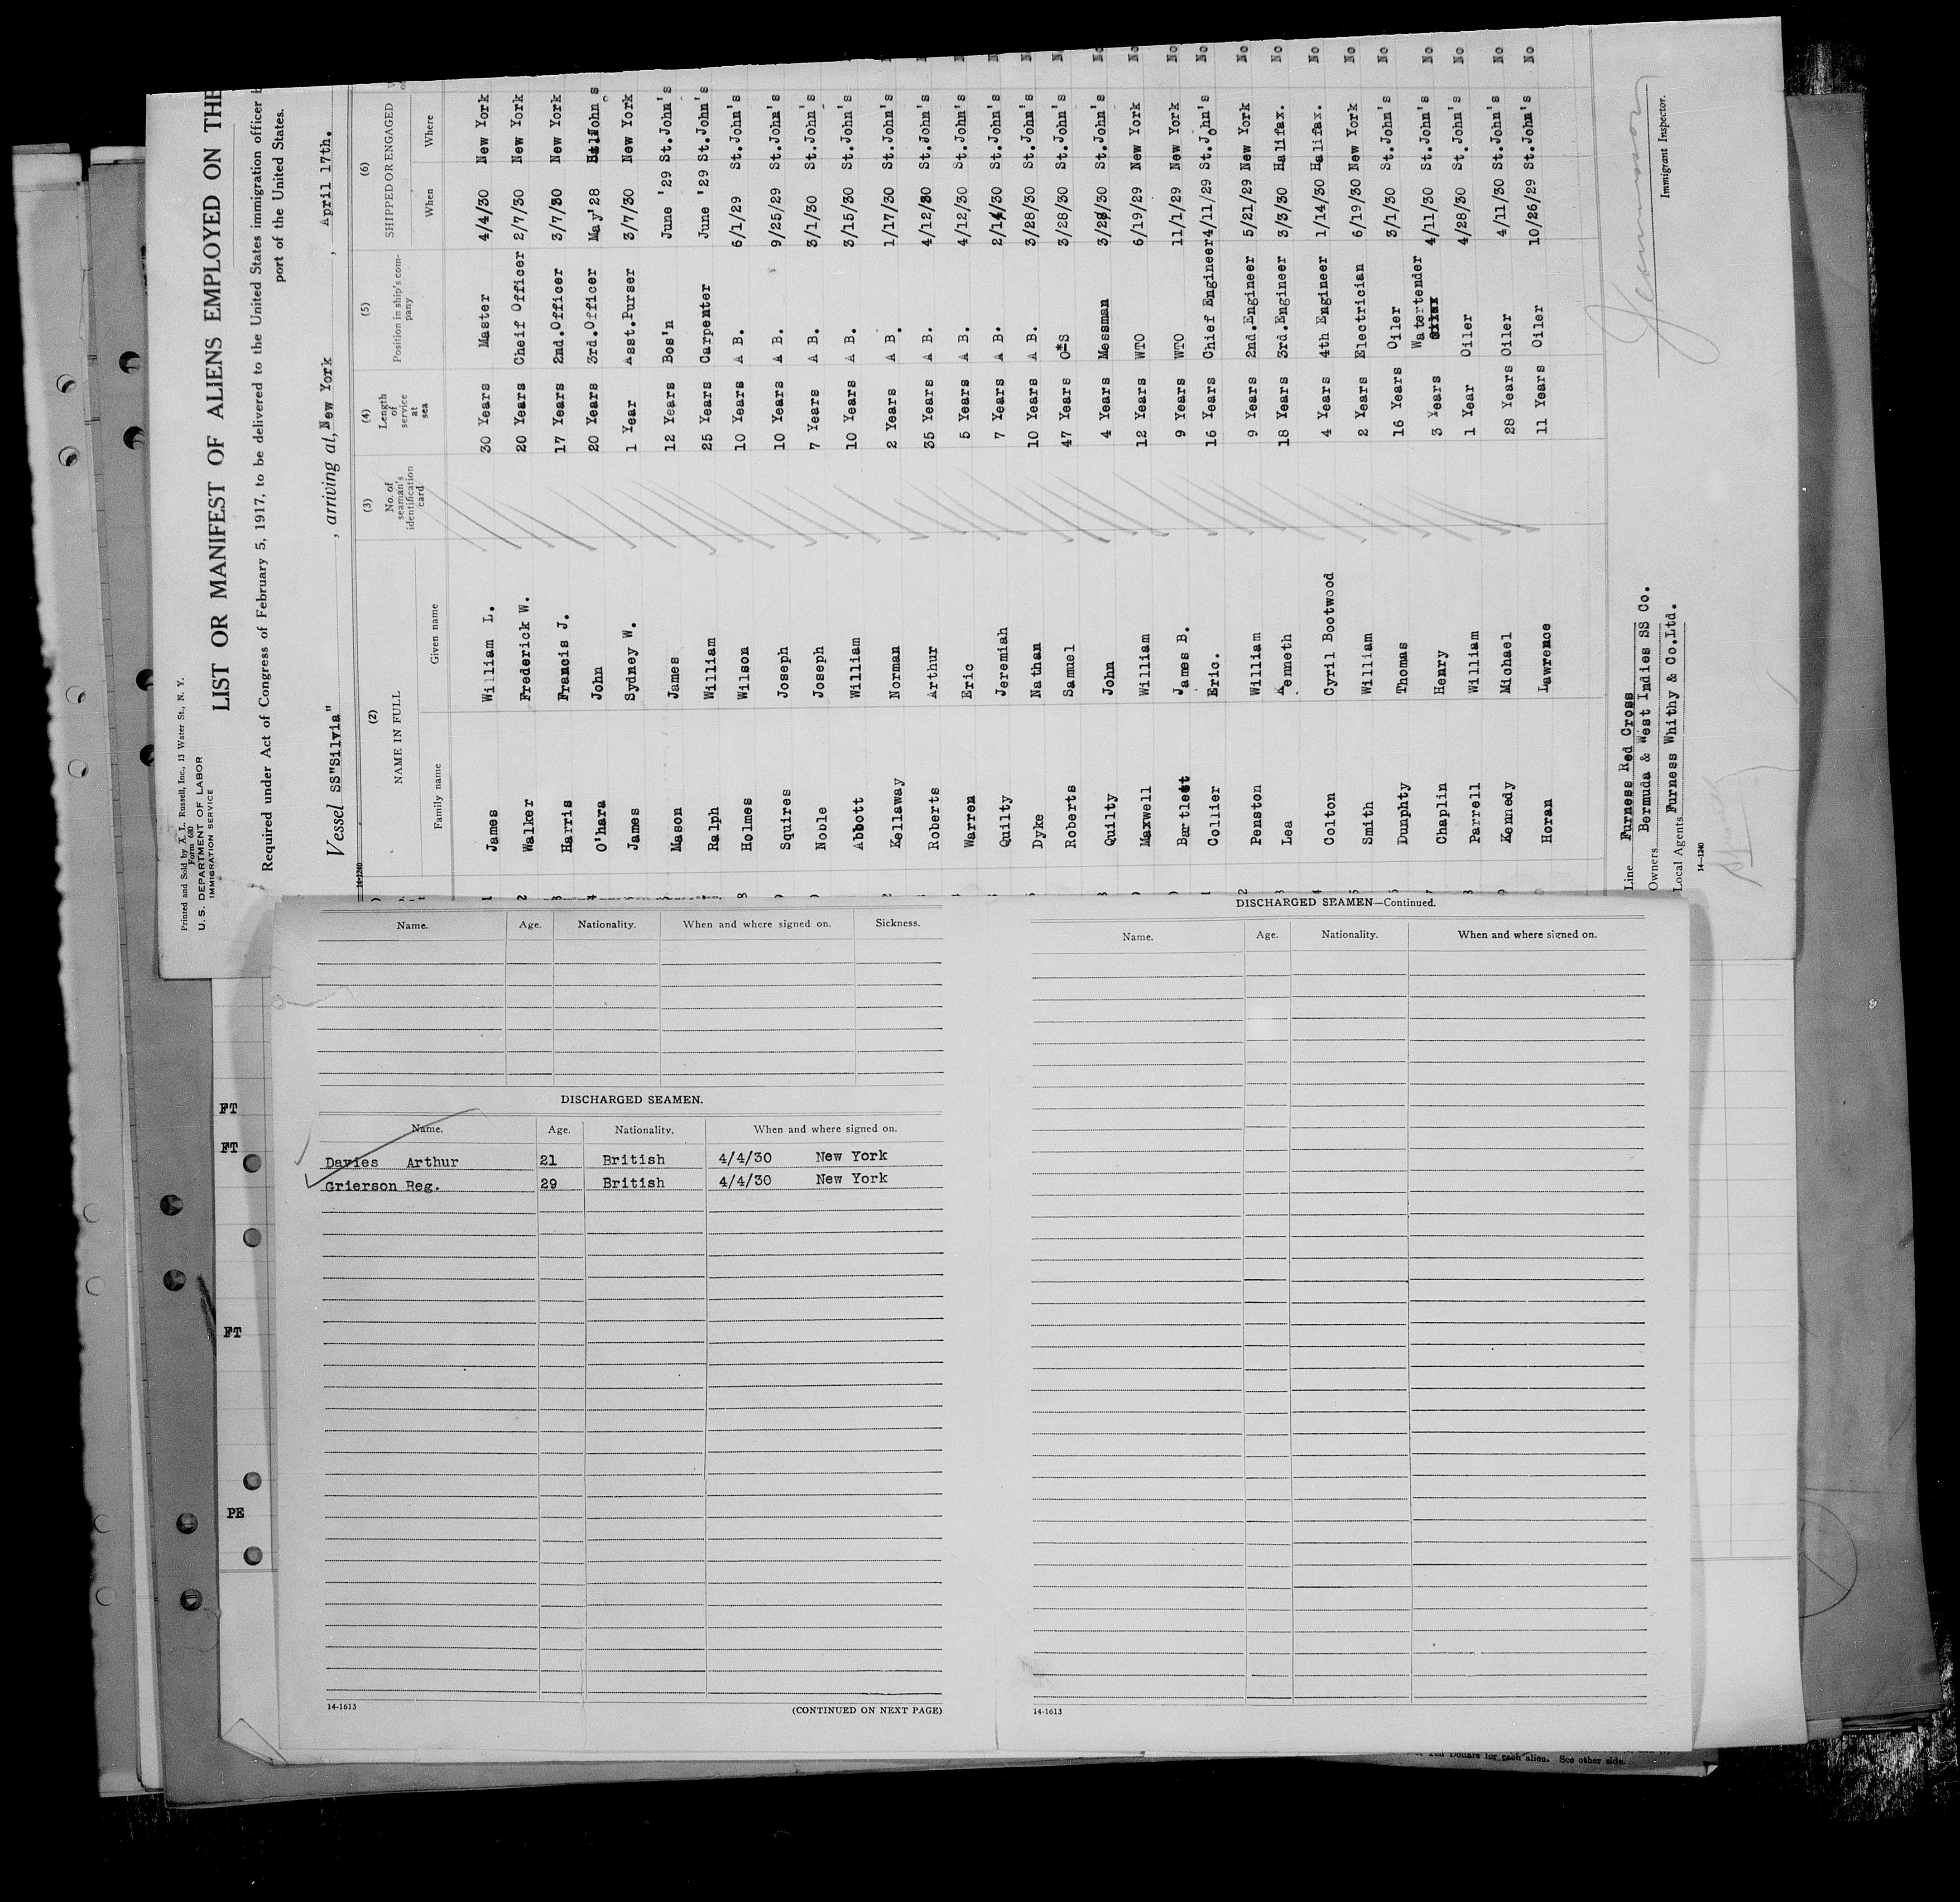 Printed and Sold by A. L. Russell, Inc., 13 Water St., N. Y.
Form 680
U. S. DEPARTMENT OF LABOR
IMMIGRATION SERVICE
LIST OR MANIFEST OF ALIENS EMPLOYED ON THE
Required under Act of Congress of February 5, 1917, to be delivered to the United States immigration officer
port of the United States.
Vessel SS"Silvia" , arriving at, New York , April 17th.
14-1240
(2) (3) (4) (5) (6)
NAME IN FULL No. of seaman's identification card Length of service at sea Position in ship's company SHIPPED OR ENGAGED
Family name Given name When Where
1 James William L. 30 Years Master 4/4/30 New York
2 Walker Frederick W. 20 Years Cheif Officer 2/7/30 New York
3 Harris Francis J. 17 Years 2nd.Officer 3/7/30 New York No
4 O'hara John 20 Years 3rd.Officer May'28 John s
James Sydney W. 1 Year Asst.Purser 3/7/30 New York
Mason James 12 Years Bos'n June '29 St.John's
Ralph William 25 Years Carpenter June '29 St.John's
8 Holmes Wilson 10 Years A B. 6/1/29 St.John's
Squires Joseph 10 Years A B. 9/25/29 St.John's
Noble Joseph 7 Years A B. 3/1/30 St.John's
Abbott William 10 Years A B. 3/15/30 St.John's
2 Kellaway Norman 2 Years A B. 1/17/30 St.John's
Roberts Arthur 35 Years A B. 4/12/30 St.John's
Warren Eric 5 Years A B. 4/12/30 St.John's No
Quilty Jeremiah 7 Years A B. 2/14/30 St.John's No
Dyke Nathan 10 Years A B. 3/28/30 St.John's No
Roberts Samuel 47 Years O*S 3/28/30 St.John's No
Quilty John 4 Years Messman 3/28/30 St.John's No
Maxwell William 12 Years WTO 6/19/29 New York No
Bartlett James B. 9 Years WTO 11/1/29 New York No
1 Collier Eric. 16 Years Chief Engineer 4/11/29 St.John's No
2 Penston William 9 Years 2nd.Engineer 5/21/29 New York No
3 Lea Kenneth 18 Years 3rd.Engineer 3/3/30 Halifax. No
4 Colton Cyril Bootwood 4 Years 4th Engineer 1/14/30 Halifax. No
5 Smith William 2 Years Electrician 6/19/30 New York No
Dunphty Thomas 16 Years Oiler 3/1/30 St.John's No
7 Chaplin Henry 3 Years Watertender 4/11/30 St.John's No
Parrell William 1 Year Oiler 4/28/30 St.John's No
Kennedy Michael 28 Years Oiler 4/11/30 St.John's No
Horan Lawrence 11 Years Oiler 10/26/29 St.John's No
Line Furness Red Cross
Owners Bermuda & West Indies SS Co.
Local Agents Furness Whithy & Co.Ltd.
Immigrant Inspector.
14—1240
Name. Age. Nationality. When and where signed on. Sickness.
DISCHARGED SEAMEN.
Name. Age. Nationality. When and where signed on.
Davies Arthur 21 British 4/4/30 New York
Grierson Reg. 29 British 4/4/30 New York
14-1613
(CONTINUED ON NEXT PAGE)
DISCHARGED SEAMEN—Continued.
Name. Age. Nationality. When and where signed on.
14-1613
FT
FT
FT
PE
Ten Dollars for each alien. See other side.